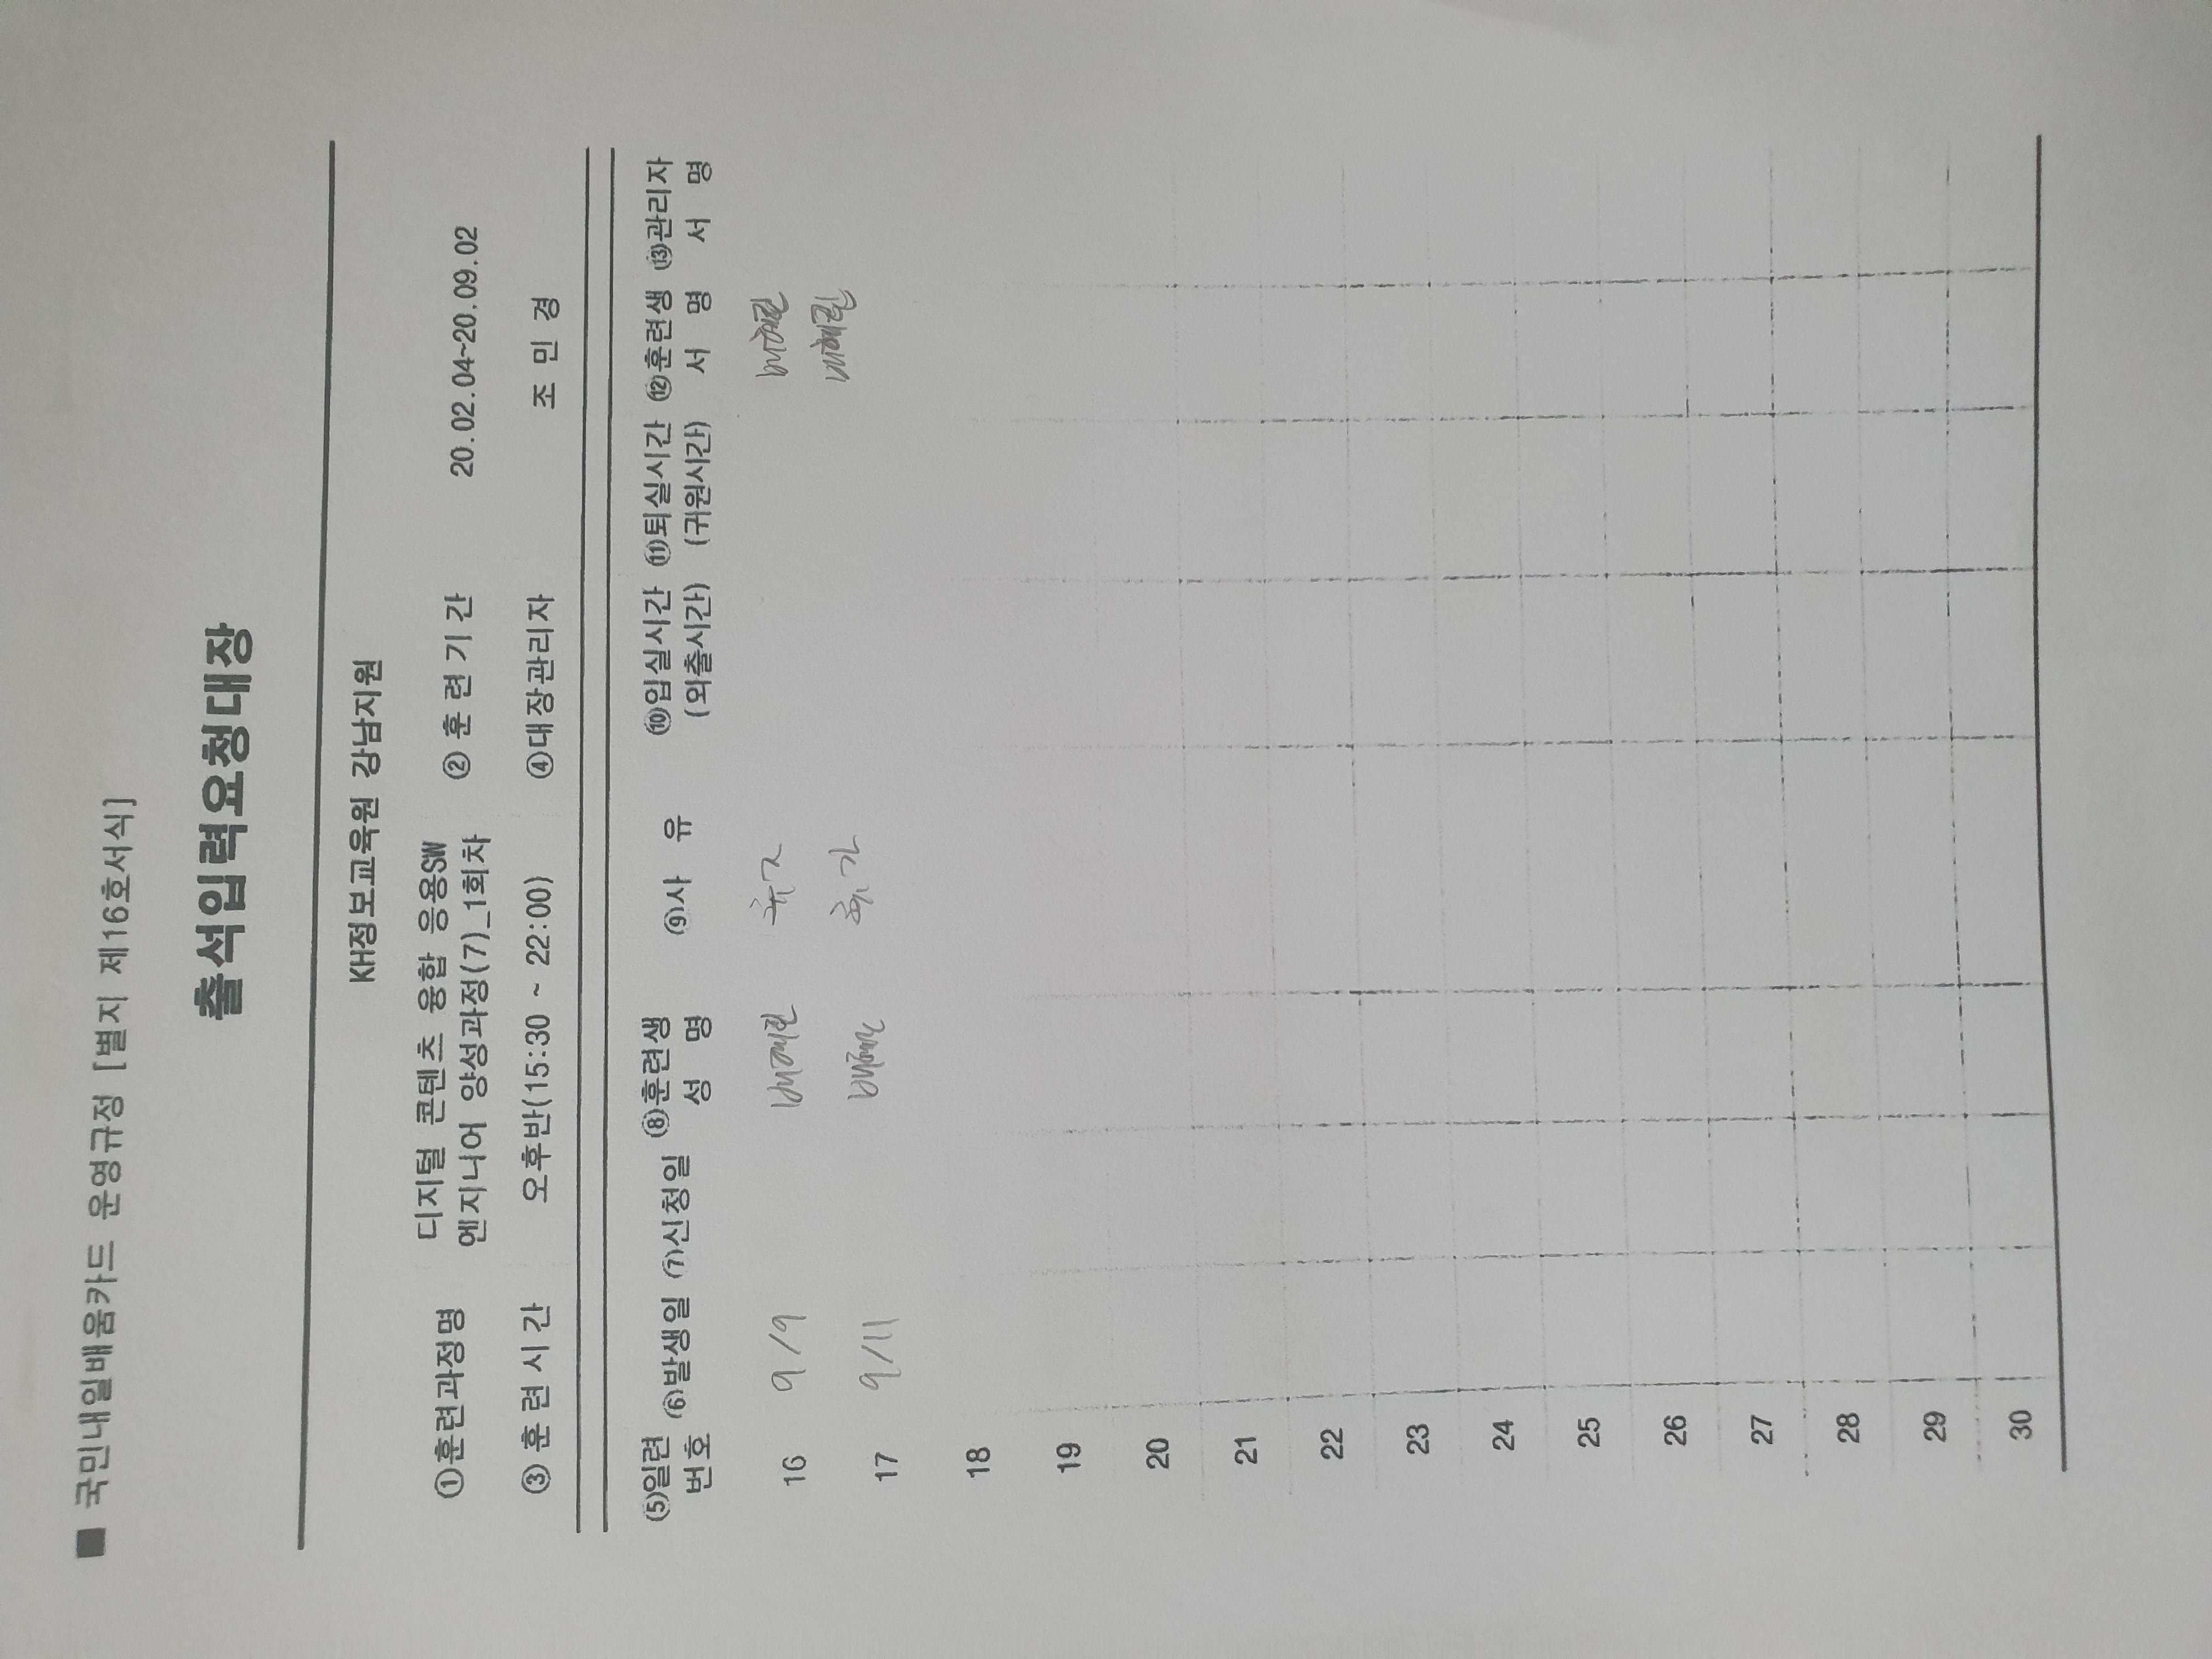 ■ 국민내일배움카드 운영규정 [별지 제16호서식]
출석입력요청대장
KH정보교육원 강남지원
①훈련과정명 디지털 콘텐츠 융합 응용SW 엔지니어 양성과정(7)_1회차 ② 훈 련 기 간 20.02.04~20.09.02
③ 훈 련 시 간 오후반(15:30 ~ 22:00) ④대장관리자 조 민 경
⑸일련번호 ⑹발생일 ⑺신청일 ⑻훈련생 성 명 ⑼사 유 ⑽입실시간 (외출시간) ⑾퇴실시간 (귀원시간) ⑿훈련생 서 명 ⒀관리자 서 명
16 9/9 휴가
17 9/11 휴가
18
19
20
21
22
23
24
25
26
27
28
29
30